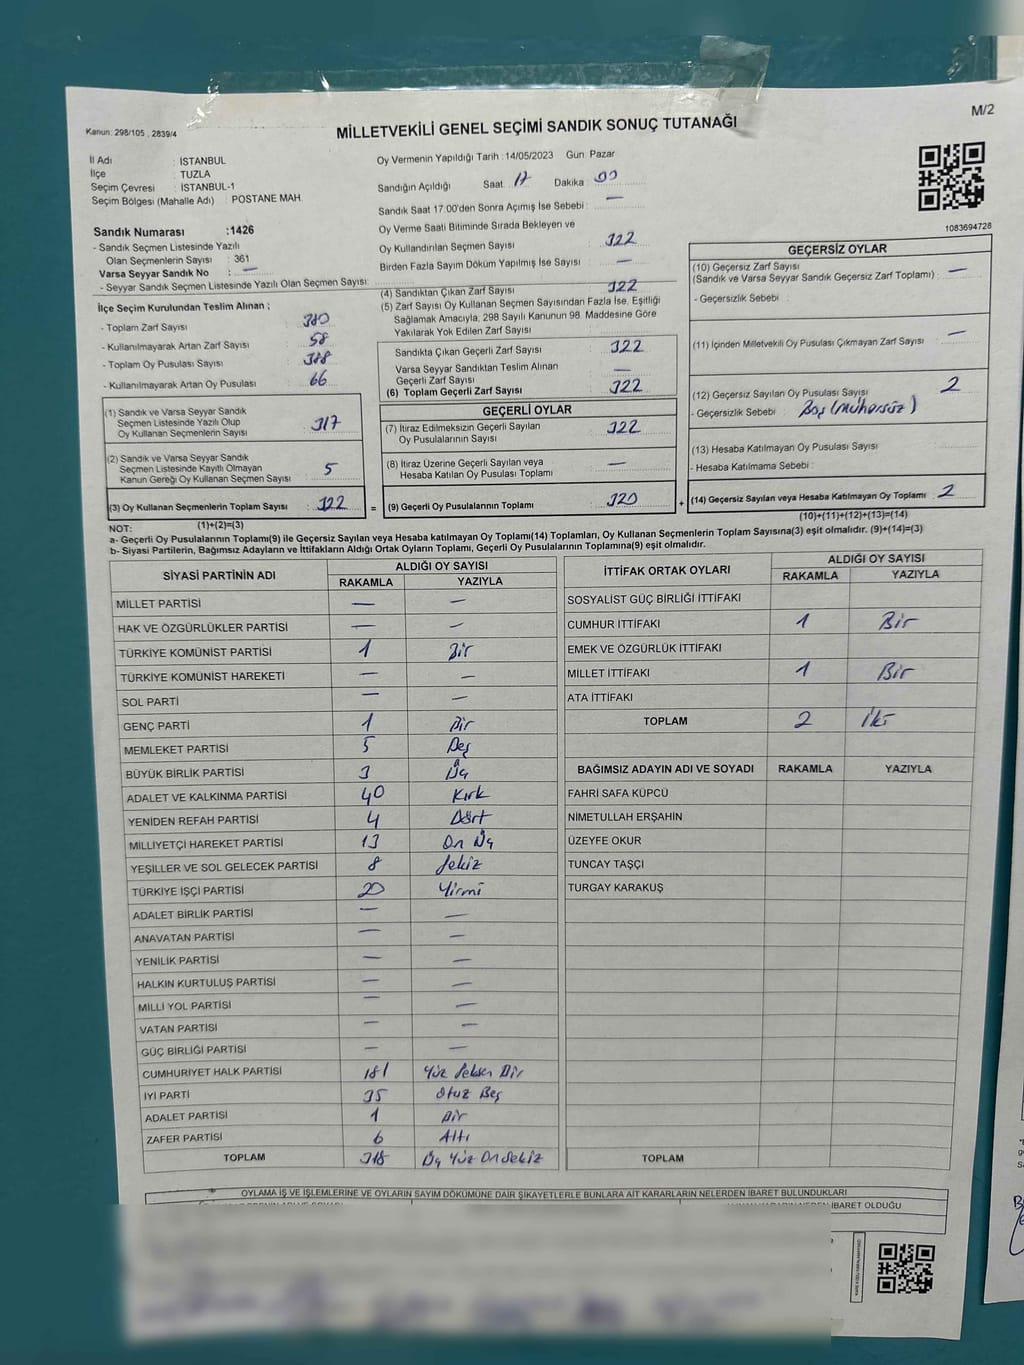 M/2
Kanun: 298/105 , 2839/4
MİLLETVEKİLİ GENEL SEÇİMİ SANDIK SONUÇ TUTANAĞI
İl Adı : İSTANBUL
İlçe : TUZLA
Seçim Çevresi : İSTANBUL-1
Seçim Bölgesi (Mahalle Adı) : POSTANE MAH.
Sandık Numarası :1426
- Sandık Seçmen Listesinde Yazılı
Olan Seçmenlerin Sayısı : 361
Varsa Seyyar Sandık No : —
- Seyyar Sandık Seçmen Listesinde Yazılı Olan Seçmen Sayısı:
Oy Vermenin Yapıldığı Tarih :14/05/2023 Gün: Pazar
Sandığın Açıldığı Saat: 17 Dakika : 00
Sandık Saat 17:00'den Sonra Açımış İse Sebebi : —
Oy Verme Saati Bitiminde Sırada Bekleyen ve
Oy Kullandırılan Seçmen Sayısı : 322
Birden Fazla Sayım Döküm Yapılmış İse Sayısı : —
1083694728
İlçe Seçim Kurulundan Teslim Alınan ;
- Toplam Zarf Sayısı : 380
- Kullanılmayarak Artan Zarf Sayısı : 58
- Toplam Oy Pusulası Sayısı : 388
- Kullanılmayarak Artan Oy Pusulası : 66
(1) Sandık ve Varsa Seyyar Sandık
Seçmen Listesinde Yazılı Olup
Oy Kullanan Seçmenlerin Sayısı : 317
(2) Sandık ve Varsa Seyyar Sandık
Seçmen Listesinde Kayıtlı Olmayan
Kanun Gereği Oy Kullanan Seçmen Sayısı : 5
(3) Oy Kullanan Seçmenlerin Toplam Sayısı : 322 =
(1)+(2)=(3)
(4) Sandıktan Çıkan Zarf Sayısı : 322
(5) Zarf Sayısı Oy Kullanan Seçmen Sayısından Fazla İse, Eşitliği
Sağlamak Amacıyla, 298 Sayılı Kanunun 98. Maddesine Göre
Yakılarak Yok Edilen Zarf Sayısı :
Sandıkta Çıkan Geçerli Zarf Sayısı : 322
Varsa Seyyar Sandıktan Teslim Alınan
Geçerli Zarf Sayısı : —
(6) Toplam Geçerli Zarf Sayısı : 322
GEÇERLİ OYLAR
(7) İtiraz Edilmeksizin Geçerli Sayılan
Oy Pusulalarının Sayısı : 322
(8) İtiraz Üzerine Geçerli Sayılan veya
Hesaba Katılan Oy Pusulası Toplamı : —
(9) Geçerli Oy Pusulalarının Toplamı : 320 +
GEÇERSİZ OYLAR
(10) Geçersiz Zarf Sayısı
(Sandık ve Varsa Seyyar Sandık Geçersiz Zarf Toplamı) : —
- Geçersizlik Sebebi :
(11) İçinden Milletvekili Oy Pusulası Çıkmayan Zarf Sayısı : —
(12) Geçersiz Sayılan Oy Pusulası Sayısı : 2
- Geçersizlik Sebebi : Boş (mühürsüz)
(13) Hesaba Katılmayan Oy Pusulası Sayısı :
- Hesaba Katılmama Sebebi :
(14) Geçersiz Sayılan veya Hesaba Katılmayan Oy Toplamı : 2
(10)+(11)+(12)+(13)=(14)
NOT:
a- Geçerli Oy Pusulalarının Toplamı(9) ile Geçersiz Sayılan veya Hesaba katılmayan Oy Toplamı(14) Toplamları, Oy Kullanan Seçmenlerin Toplam Sayısına(3) eşit olmalıdır. (9)+(14)=(3)
b- Siyasi Partilerin, Bağımsız Adayların ve İttifakların Aldığı Ortak Oyların Toplamı, Geçerli Oy Pusulalarının Toplamına(9) eşit olmalıdır.
SİYASİ PARTİNİN ADI ALDIĞI OY SAYISI
RAKAMLA YAZIYLA
MİLLET PARTİSİ — —
HAK VE ÖZGÜRLÜKLER PARTİSİ — —
TÜRKİYE KOMÜNİST PARTİSİ 1 Bir
TÜRKİYE KOMÜNİST HAREKETİ — —
SOL PARTİ — —
GENÇ PARTİ 1 Bir
MEMLEKET PARTİSİ 5 Beş
BÜYÜK BİRLİK PARTİSİ 3 Üç
ADALET VE KALKINMA PARTİSİ 40 Kırk
YENİDEN REFAH PARTİSİ 4 Dört
MİLLİYETÇİ HAREKET PARTİSİ 13 On Üç
YEŞİLLER VE SOL GELECEK PARTİSİ 8 Sekiz
TÜRKİYE İŞÇİ PARTİSİ 20 Yirmi
ADALET BİRLİK PARTİSİ — —
ANAVATAN PARTİSİ — —
YENİLİK PARTİSİ — —
HALKIN KURTULUŞ PARTİSİ — —
MİLLİ YOL PARTİSİ — —
VATAN PARTİSİ — —
GÜÇ BİRLİĞİ PARTİSİ — —
CUMHURİYET HALK PARTİSİ 181 Yüz Seksen Bir
İYİ PARTİ 35 Otuz Beş
ADALET PARTİSİ 1 Bir
ZAFER PARTİSİ 6 Altı
TOPLAM 318 Üç Yüz On Sekiz
İTTİFAK ORTAK OYLARI ALDIĞI OY SAYISI
RAKAMLA YAZIYLA
SOSYALİST GÜÇ BİRLİĞİ İTTİFAKI
CUMHUR İTTİFAKI 1 Bir
EMEK VE ÖZGÜRLÜK İTTİFAKI
MİLLET İTTİFAKI 1 Bir
ATA İTTİFAKI
TOPLAM 2 İki
BAĞIMSIZ ADAYIN ADI VE SOYADI RAKAMLA YAZIYLA
FAHRİ SAFA KÜPCÜ
NİMETULLAH ERŞAHİN
ÜZEYFE OKUR
TUNCAY TAŞÇI
TURGAY KARAKUŞ
TOPLAM
OYLAMA İŞ VE İŞLEMLERİNE VE OYLARIN SAYIM DÖKÜMÜNE DAİR ŞİKAYETLERLE BUNLARA AİT KARARLARIN NELERDEN İBARET BULUNDUKLARI
İBARET OLDUĞU